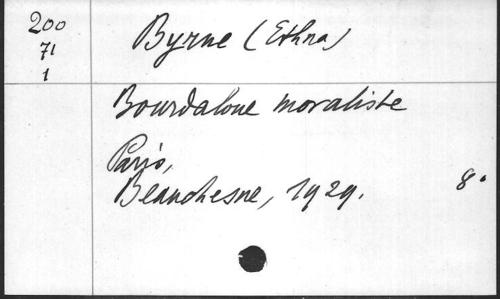 200
71
1
Byrne (Ethna)
Bourdaloue moraliste
Paris,
Beauchesne, 1929. 8°